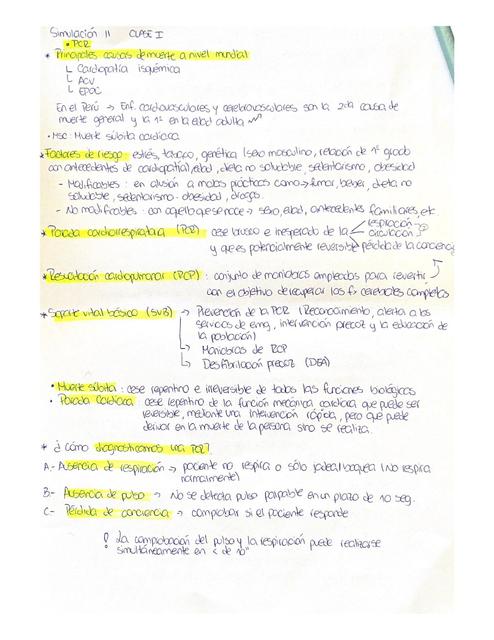 Simulación II CLASE I
• PCR
* Principales causas de muerte a nivel mundial
↳ Cardiopatía isquémica
↳ ACV
↳ EPOC
En el Perú → Enf. cardiovasculares y cerebrovasculares son la 2da causa de
muerte general y la 1º en la edad adulta
• MSC: Muerte súbita cardíaca
* Factores de riesgo: estrés, tabaco, genética (sexo masculino, relación de 1º grado
con antecedentes de cardiopatía), edad, dieta no saludable, sedentarismo, obesidad
- Modificables: en alusión a malas prácticas como → fumar, beber, dieta no
saludable, sedentarismo, obesidad, drogas.
- No modificables: con aquello que se nace → sexo, edad, antecedentes familiares, etc.
* Parada cardiorespiratoria (PCR): cese brusco e inesperado de la respiración
circulación
y que es potencialmente reversible pérdida de la conciencia
* Resucitación cardiopulmonar (RCP): conjunto de maniobras empleadas para revertir
con el objetivo de recuperar las fx cerebrales completas
* Soporte vital básico (SVB) → Prevención de la PCR (Reconocimiento, alerta a los
servicios de emg, intervención precoz y la educación de
la población)
→ Maniobras de RCP
↳ Desfibrilación precoz (DEA)
• Muerte súbita: cese repentino e irreversible de todas las funciones biológicas
• Parada Cardíaca cese repentino de la función mecánica cardiaca que puede ser
reversible, mediante una intervención rápida, pero que puede
derivar en la muerte de la persona sino se realiza.
* ¿Cómo diagnosticamos una PCR?
A.- Ausencia de respiración → paciente no respira o sólo jadea/boquea (no respira
normalmente)
B- Ausencia de pulso → No se detecta pulso palpable en un plazo de 10 seg.
C- Pérdida de conciencia → comprobar si el paciente responde
! La comprobación del pulso y la respiración puede realizarse
simultáneamente en < de 10"